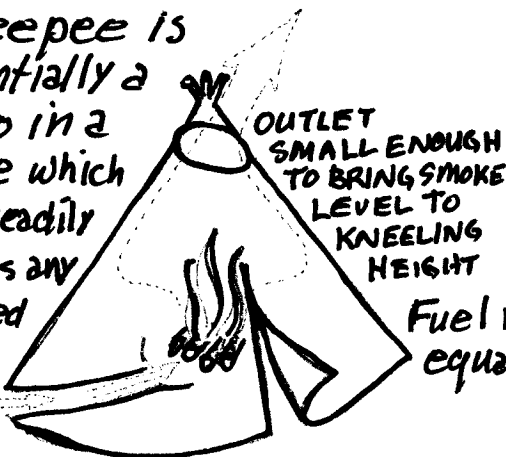 eepee is
ntially a
o in a
e which
eadily
s any
ed
OUTLET
SMALL ENOUGH
TO BRING SMOKE
LEVEL TO
KNEELING
HEIGHT
Fuel
equa